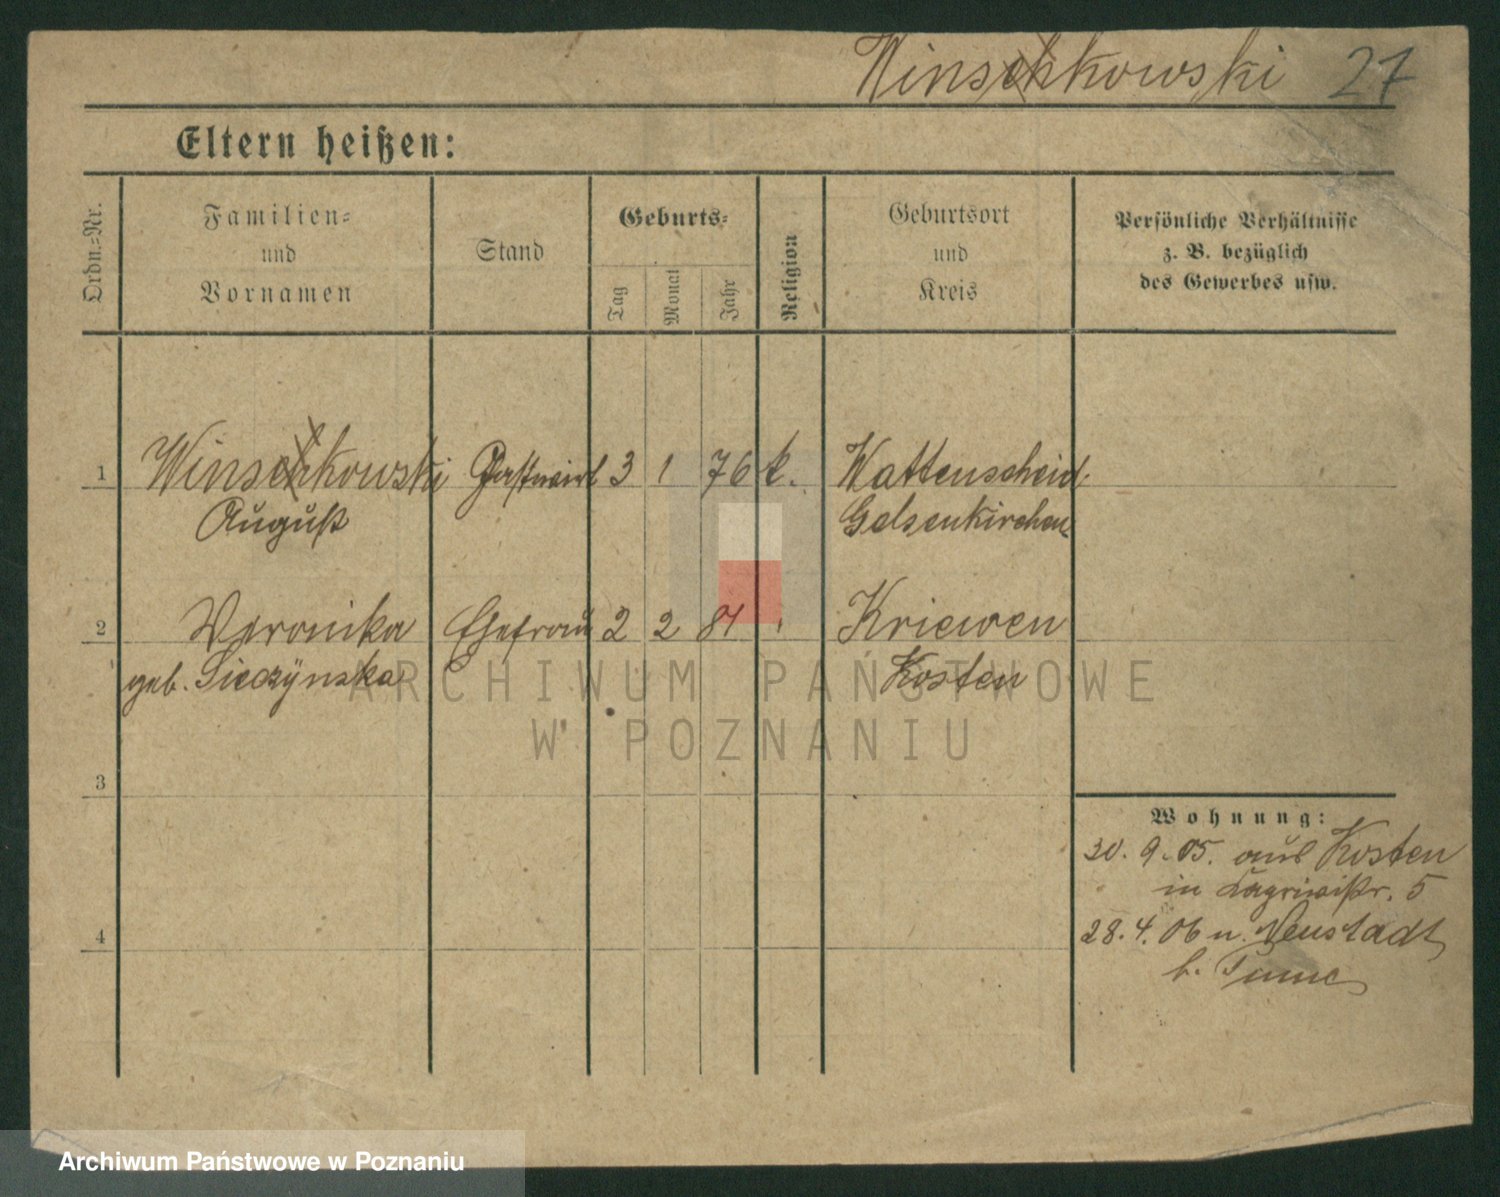 Winschkowski 27
Eltern heißen:
Ordn.-Nr.
Familien-
und
Vornamen
Stand
Geburts-
Tag
Monat
Jahr
Religion
Geburtsort
und
Kreis
Persönliche Verhältnisse
z. B. bezüglich
des Gewerbes usw.
1 Winschkowski Gastwirt 3 1 76 k. Wattenscheid
August Gelsenkirchen
2 Veronika Ehefrau 2 2 81 " Kriewen
geb. Kosten
ARCHIWUM PAŃSTWOWE
W POZNANIU
3
Wohnung:
30. 9. 05. aus Kosten
in 5
4
28. 4. 06 n. Neustadt
b. Pinne
Archiwum Państwowe w Poznaniu